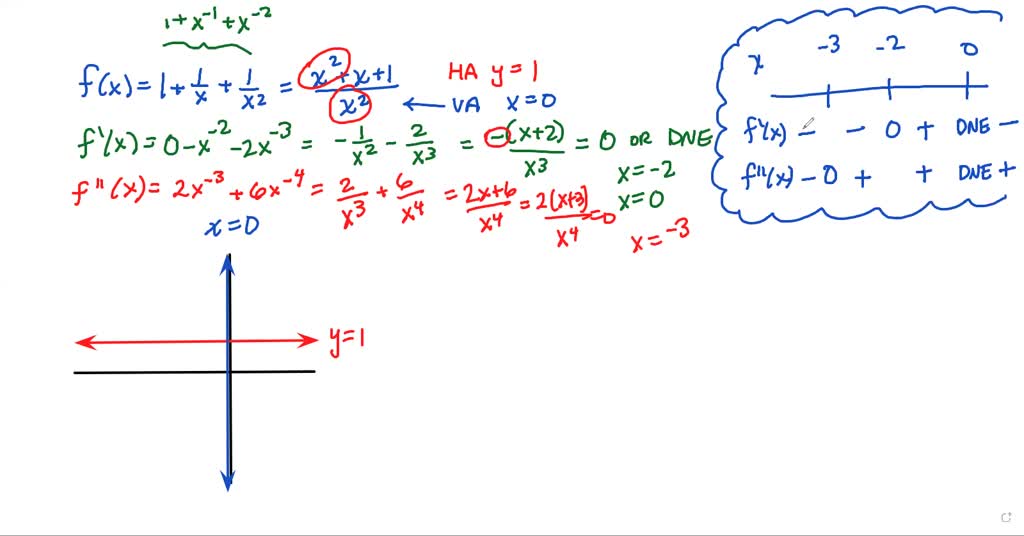 1 + x⁻¹ + x⁻²
f(x) = 1 + 1/x + 1/x² = (x² + x + 1)/x²
HA y = 1
← VA x = 0
f'(x) = 0 - x⁻² - 2x⁻³ = -1/x² - 2/x³ = -(x+2)/x³ = 0 OR DNE
x = -2
x = 0
f''(x) = 2x⁻³ + 6x⁻⁴ = 2/x³ + 6/x⁴ = (2x+6)/x⁴ = 2(x+3)/x⁴ = 0
x = -3
x -3 -2 0
f'(x) - - 0 + DNE -
f''(x) - 0 + + DNE +
x = 0
y = 1